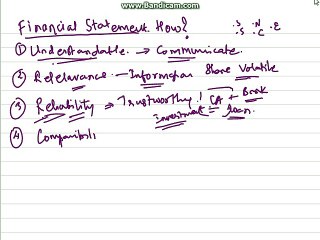 www.Bandicam.com
Financial Statement How?
.S .N .E
S C
① Understandable. → Communicate.
② Relelevance — Information Share Volatile
③ Reliability ⇒ Trustworthy! CA + Bank
Investment loan.
④ Comparibili